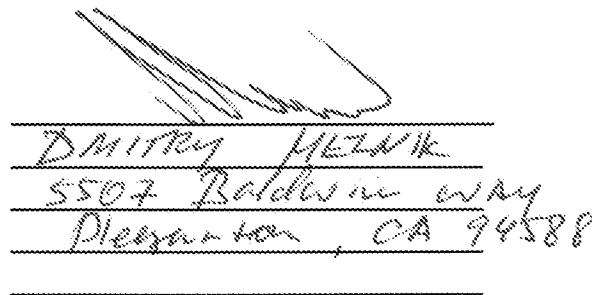 DMITRY MELNIK
5507 Baldwin way
Pleasanton, CA 94588